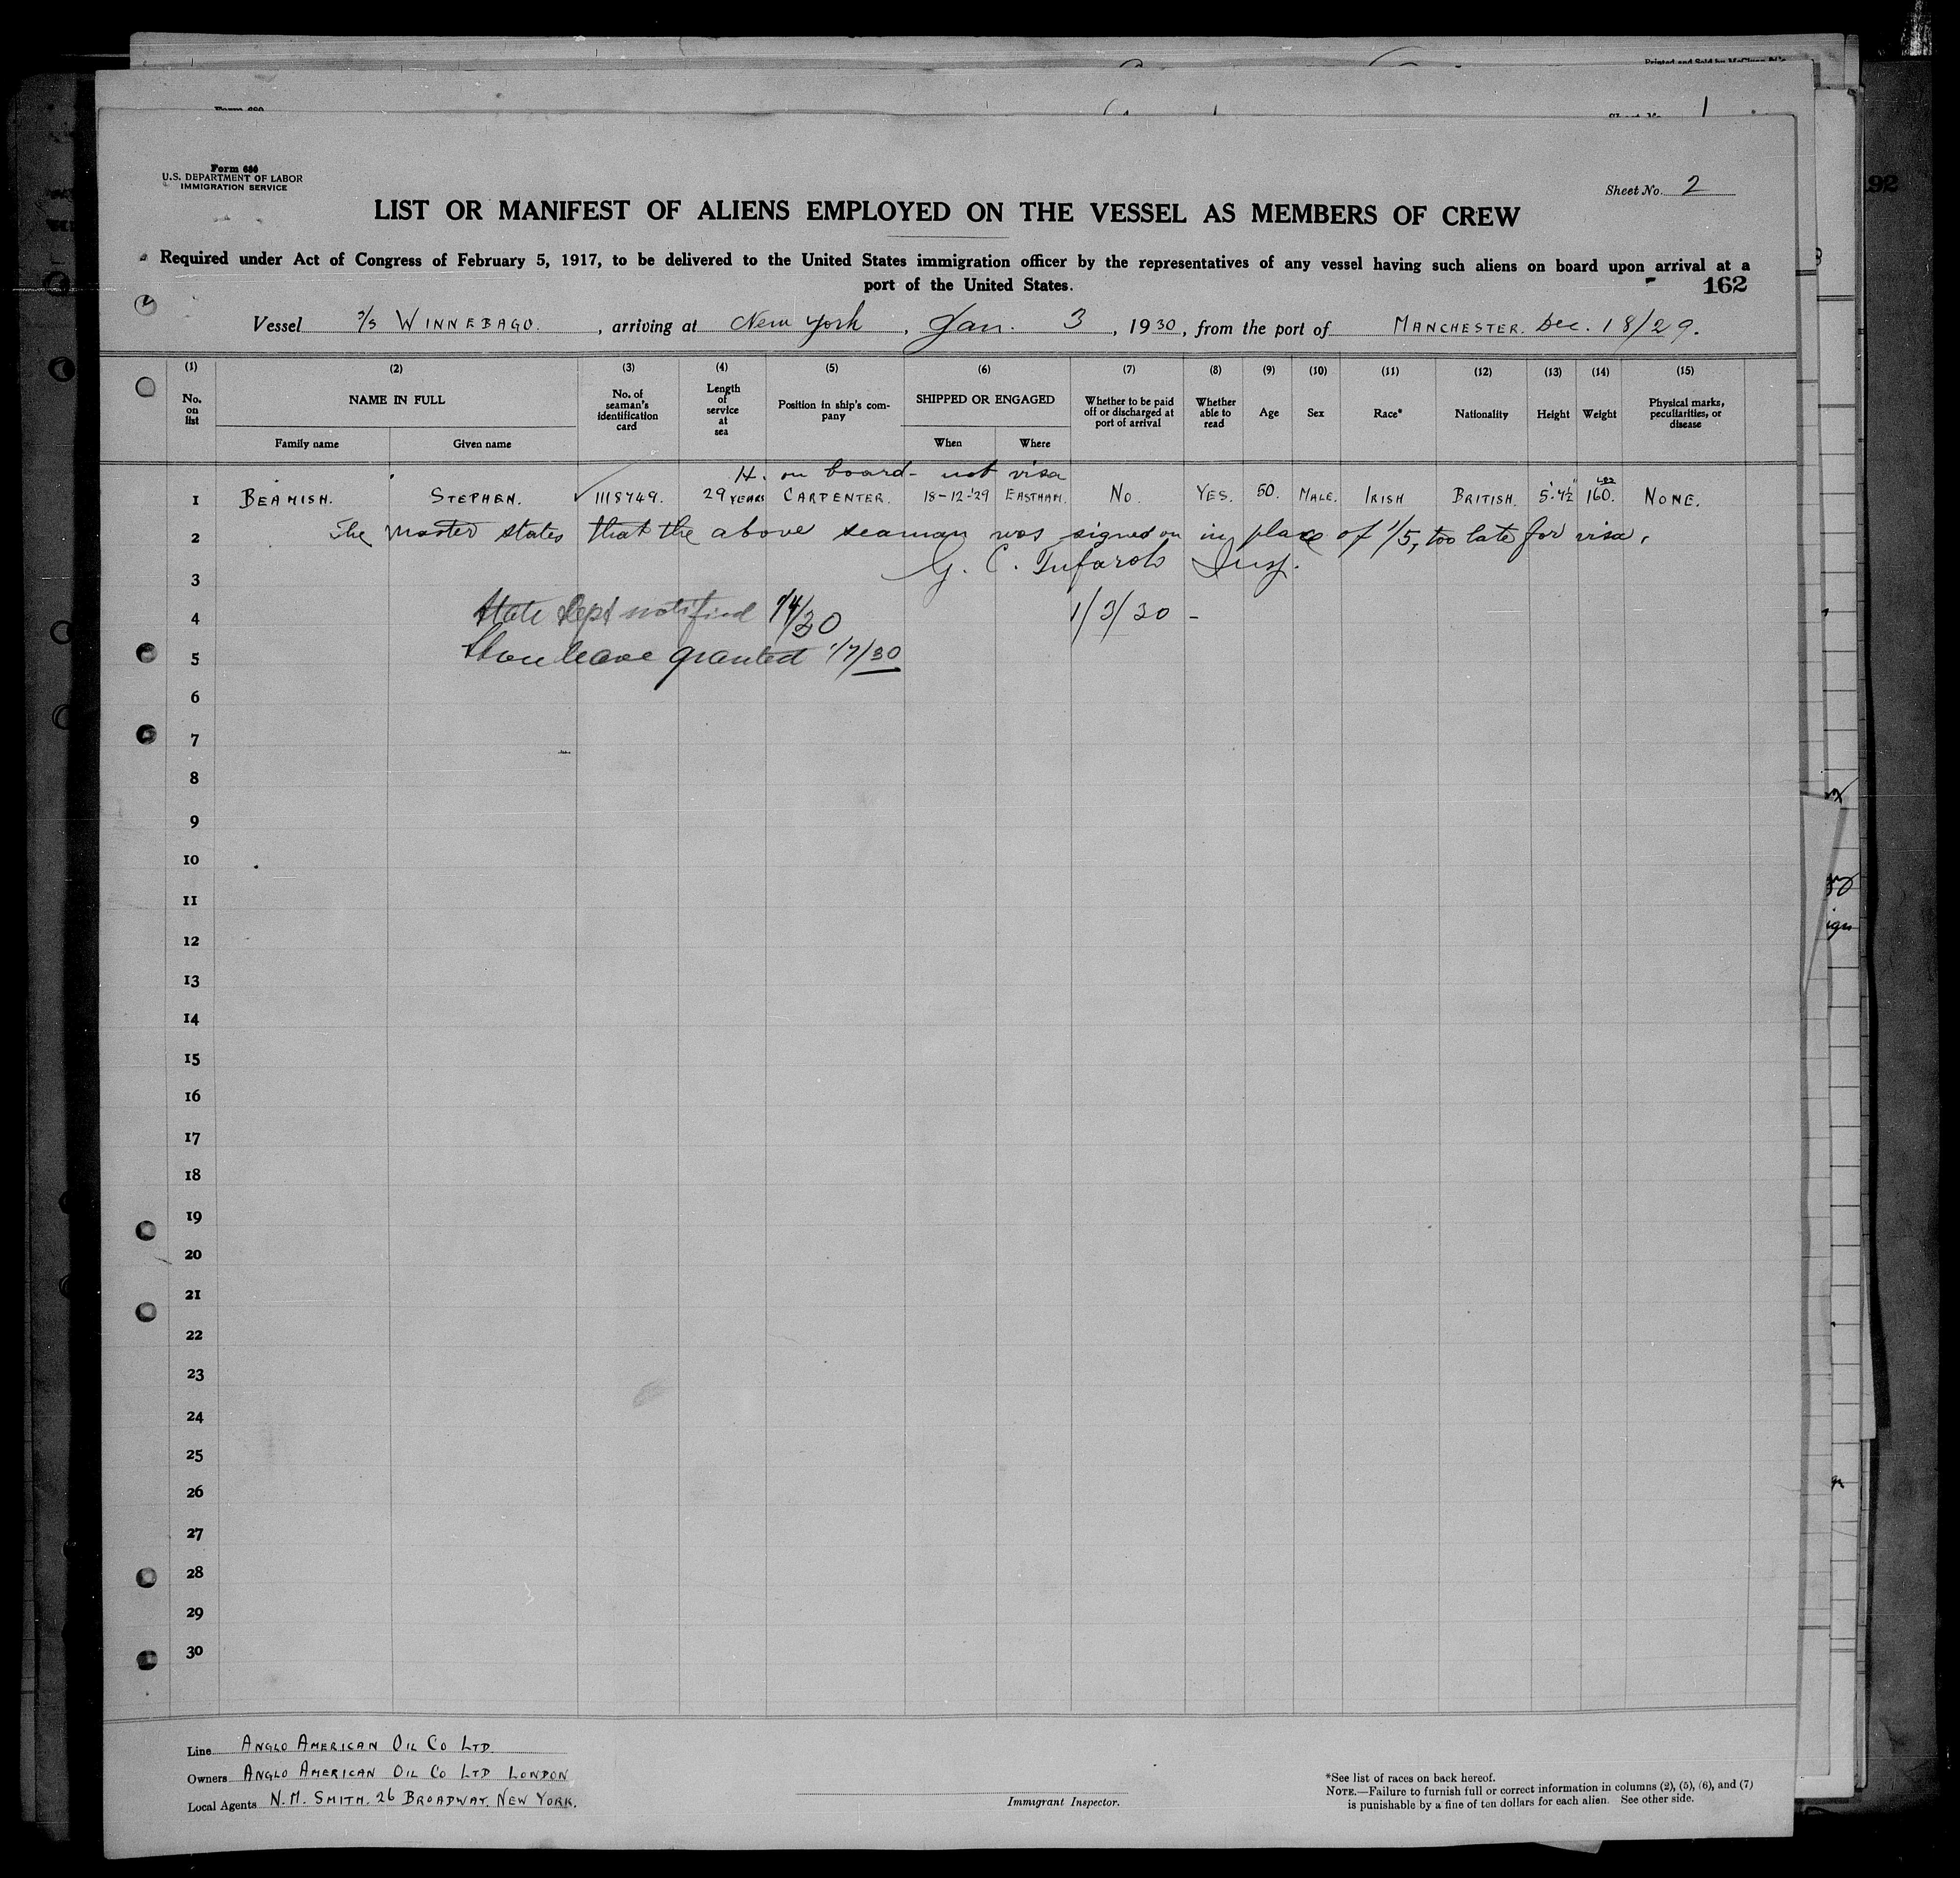 Form 680
U.S. DEPARTMENT OF LABOR
IMMIGRATION SERVICE
Sheet No. 2
LIST OR MANIFEST OF ALIENS EMPLOYED ON THE VESSEL AS MEMBERS OF CREW
Required under Act of Congress of February 5, 1917, to be delivered to the United States immigration officer by the representatives of any vessel having such aliens on board upon arrival at a
port of the United States.
162
Vessel S/S WINNEBAGO. , arriving at New York , Jan. 3 , 1930 , from the port of MANCHESTER. Dec. 18/29.
(1) (2) (3) (4) (5) (6) (7) (8) (9) (10) (11) (12) (13) (14) (15)
No. on list NAME IN FULL No. of seaman's identification card Length of service at sea Position in ship's company SHIPPED OR ENGAGED Whether to be paid off or discharged at port of arrival Whether able to read Age Sex Race* Nationality Height Weight Physical marks, peculiarities, or disease
Family name Given name When Where
on board - not visa
1 BEAMISH. STEPHEN. 1118749. 29 YEARS CARPENTER. 18-12-'29 EASTHAM. No. YES. 50. MALE. IRISH BRITISH. 5'-4½" 160. LBS NONE.
2 The Master states that the above seaman was signed on in place of 1/5, too late for visa.
3 G. C. Insp.
4 State Dept notified 1/4/30 1/3/30 -
5 Shore leave granted 1/7/30
6
7
8
9
10
11
12
13
14
15
16
17
18
19
20
21
22
23
24
25
26
27
28
29
30
Line ANGLO AMERICAN OIL CO LTD.
Owners ANGLO AMERICAN OIL CO LTD LONDON
Local Agents N.M. SMITH. 26 BROADWAY. NEW YORK.
Immigrant Inspector.
*See list of races on back hereof.
NOTE.—Failure to furnish full or correct information in columns (2), (5), (6), and (7)
is punishable by a fine of ten dollars for each alien. See other side.